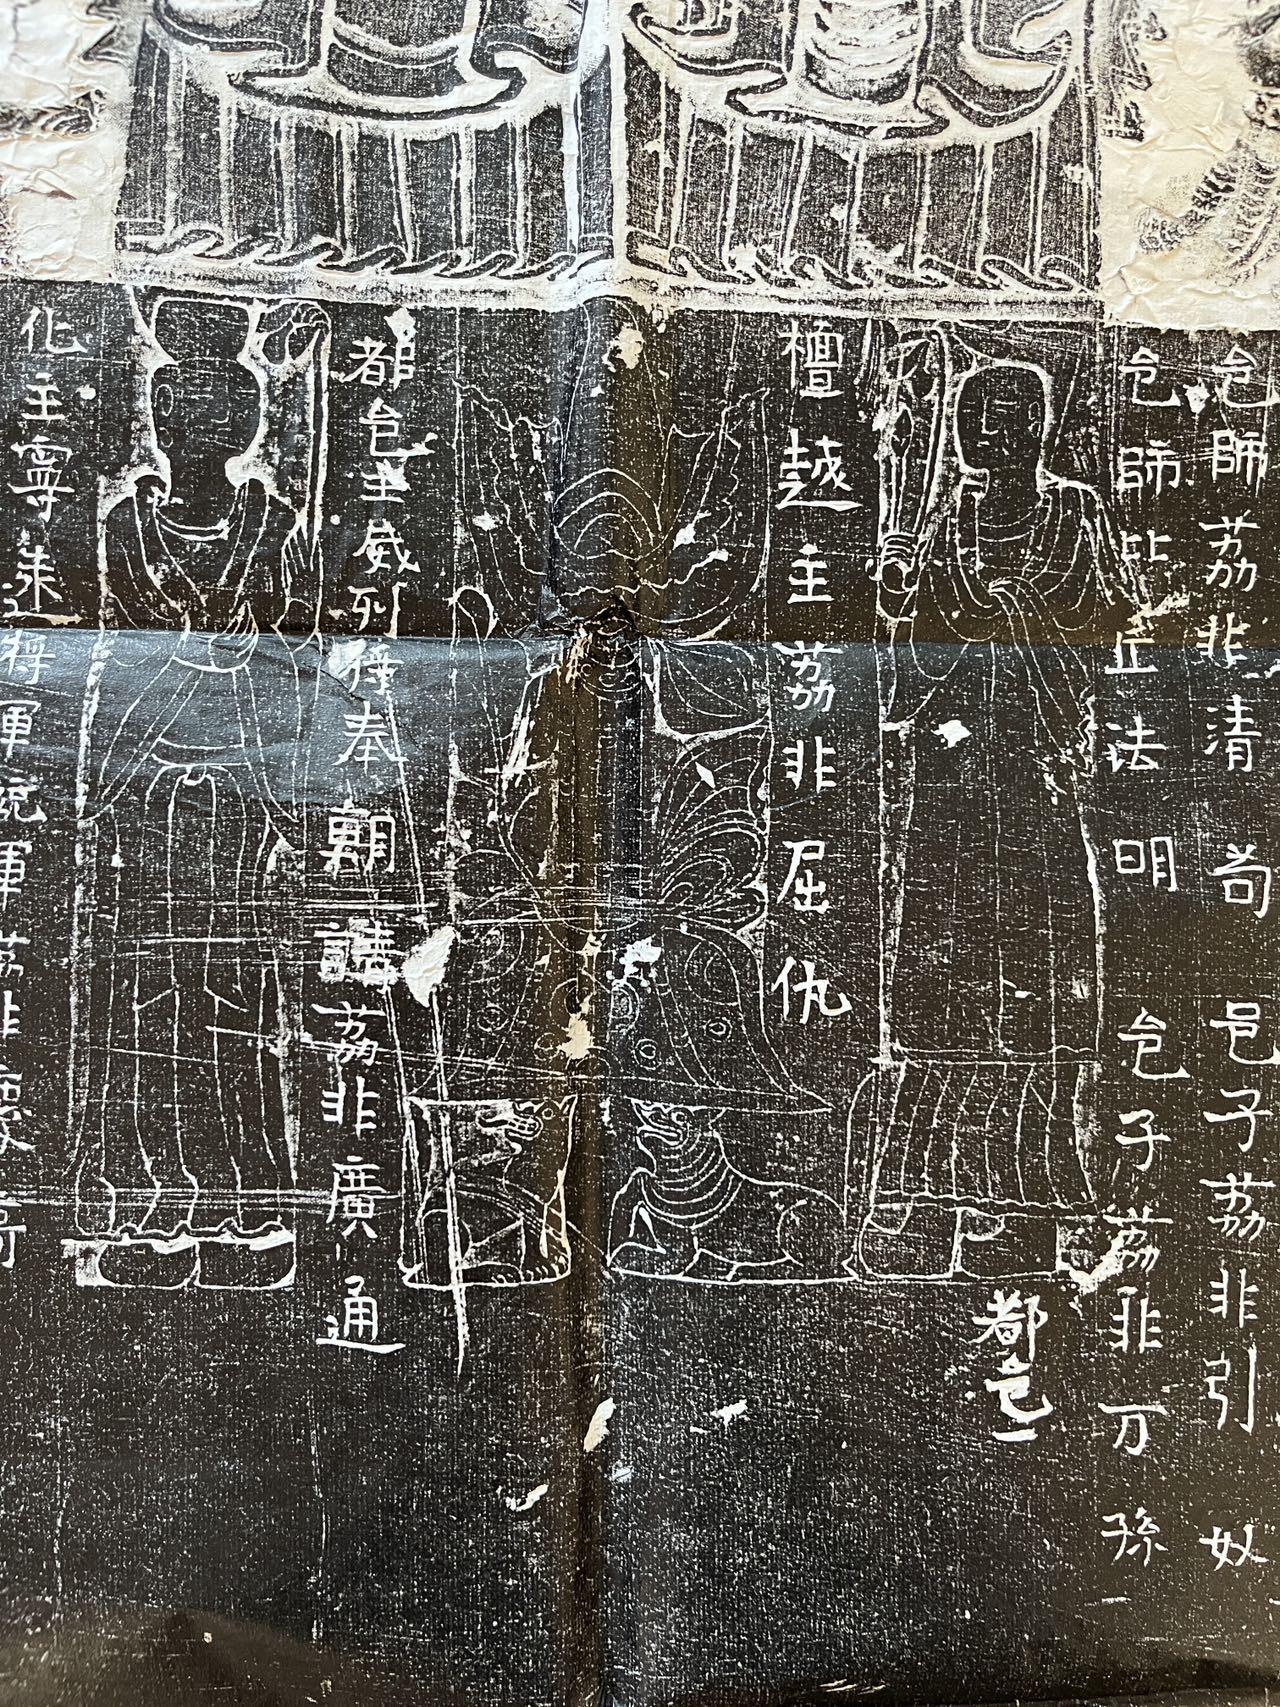 邑師荔非清苟 邑子荔非引奴
邑師比丘法明 邑子荔非万孫
都邑
檀越主荔非屈仇
都邑主威列将奉朝請荔非廣通
化主將軍統軍荔非